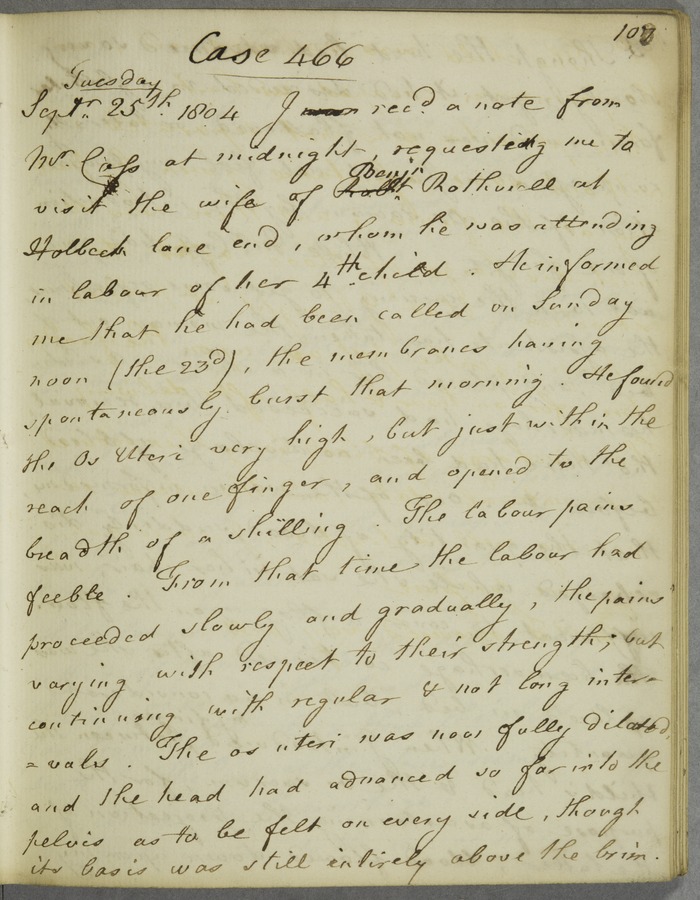 108
Case 466
Tuesday
Septr. 25th. 1804 I recd a note from
Mr. Cass at midnight, requesting me to
Benjn
visit the wife of Robt. Rothwell at
Holbeck lane end, whom he was attending
in labour of her 4th. child. He informed
me that he had been called on Sunday
noon (the 23d), the membranes having
spontaneously burst that morning. He found
the Os Uteri very high, but just within the
reach of one finger, and opened to the
breadth of a shilling. The labour pains
feeble. From that time the labour had
proceeded slowly and gradually, the pains
varying with respect to their strength; but
continuing with regular & not long inter=
=vals. The os uteri was now fully dilated,
and the head had advanced so far into the
pelvis as to be felt on every side, though
its basis was still entirely above the brim.